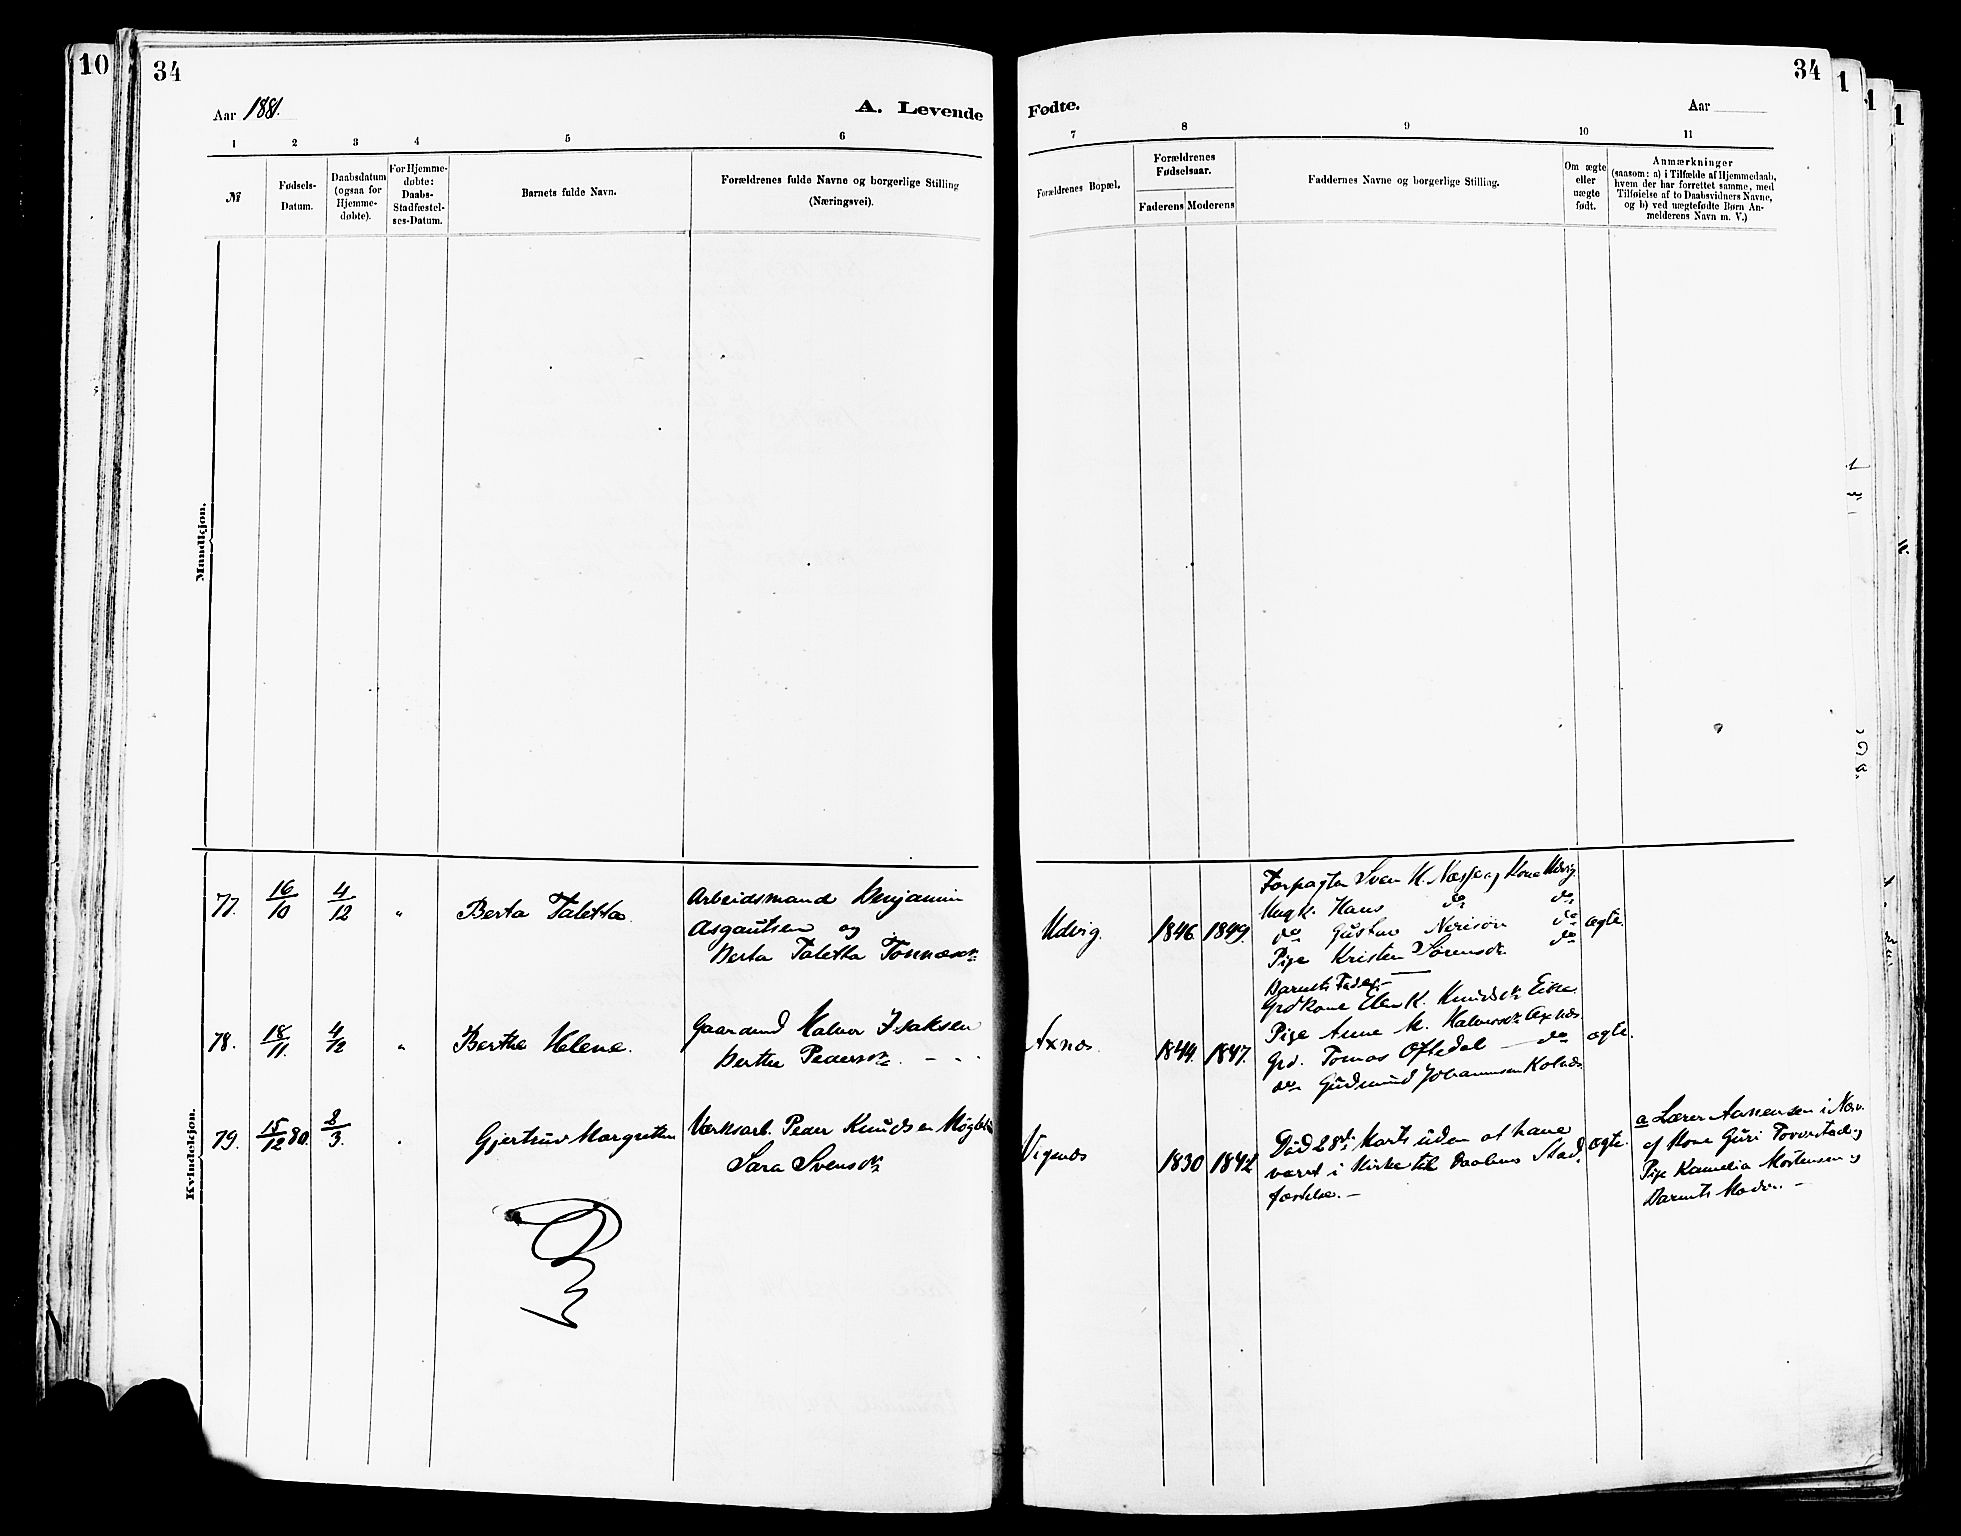 10
34
Aar 1881.
A. Levende
1 2 3 4 5 6
№
Fødsels-
Datum.
Daabsdatum
(ogsaa for
Hjemme-
døbte).
For Hjemme-
døbte:
Daabs-
Stadfæstel-
ses-Datum.
Barnets fulde Navn.
Forældrenes fulde Navne og borgerlige Stilling
(Næringsvei).
Mandkjøn.
Kvindekjøn.
77. 16/10 4/12 " Berta Taletta
Arbeidsmand Benjamin
Asgautsen og
Berta Taletta Tønnesdtr
78. 18/11. 4/12 " Berthe Helene.
Gaardmd Halvor Isaksen
Berthe Pedersdtr. - - -
79. 15/12 80. 2/3. Gjertrud Margrethe
Værksarb. Peder Knudsen
Sara Svensdtr
34
Fødte.
Aar
7 8 9 10 11
Forældrenes Bopæl.
Forældrenes
Fødselsaar.
Faderens Moderens
Faddernes Navne og borgerlige Stilling.
Om ægte
eller
uægte
født.
Anmærkninger
(saasom: a) i Tilfælde af Hjemmedaab,
hvem der har forrettet samme, med
Tilføielse af to Daabsvidners Navne,
og b) ved uægtefødte Børn An-
melderens Navn m. V.)
Udvig. 1846 1849. ægte.
Forpagter Sven K. Næsse og Kone Udvig
Ungk. Hans do do
do Gustav do
Pige Kristen Sørensdtr do
Barnets Fader. —
Axnæs. 1844. 1847. ægte.
Grdkone Elen K. Knudsdtr Eike.
Pige Anne M. Halvorsdtr Axnæs
Grd. Tomas Oftedal — do
do Gudmund Johannesen Kolnæs
Vigenæs 1830 1842 ægte.
Død 28de Marts uden at have
været i Kirke til Daabens Stad-
fæstelse. —
a Lærer Aanensen i
af Kone Guri Torvestad og
Pige Kamelia Mortensen og
Barnets Moder. —
1
1
1